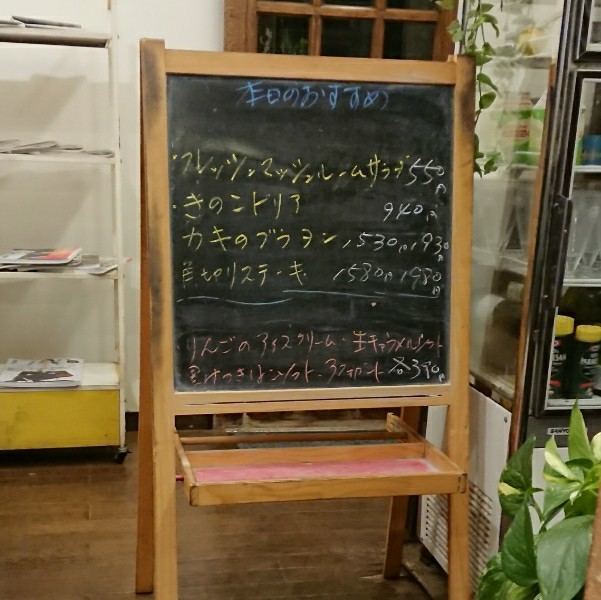 本日のおすすめ
・フレッシュマッシュルームサラダ 550円
・きのこドリア 940円
カキのグラタン 1530円 1930円
角切りステーキ 1580円 1980円
りんごのアイスクリーム・生キャラメルソフト
各390円
SANYO